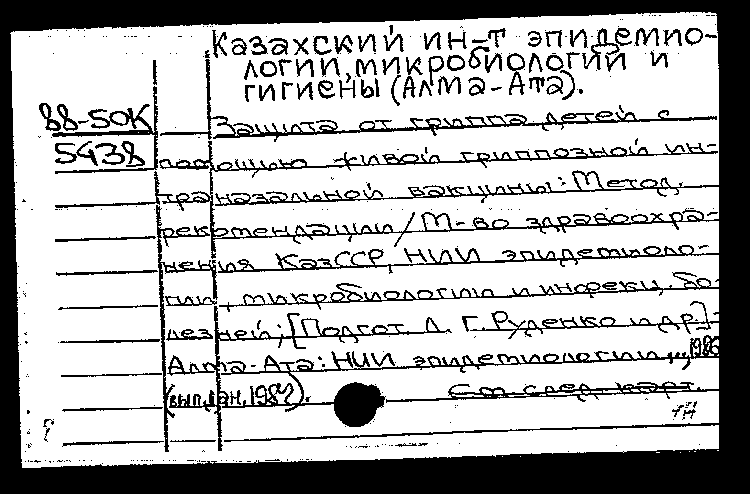 Казахский ин-т эпидемио-
логии, микробиологий и
гигиены (Алма-Ата).
88-50К
5438
Защита от гриппа детей с
помощью живой гриппозной ин-
траназальной вакцины: Метод.
рекомендации/М-во здравоохра-
нения КазССР, НИИ эпидемиоло-
гии, микробиологии и инфекц. бо-
лезней; [Подгот. Л. Г. Руденко и др.]-
Алма-Ата: НИИ эпидемиологии..., 1986
(вып.дан. 1987).
См. след. карт.